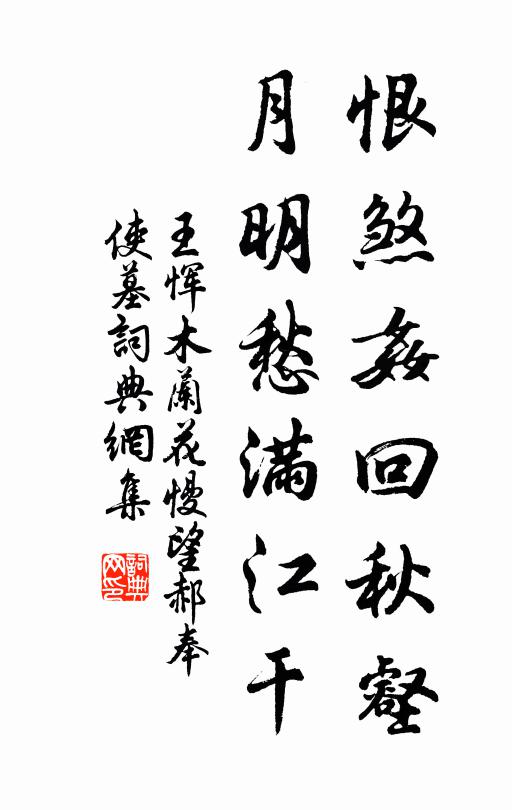 恨煞姦回秋壑
月明愁滿江干
王惲木蘭花慢望郝奉
使墓詞典網集
詞典
网印